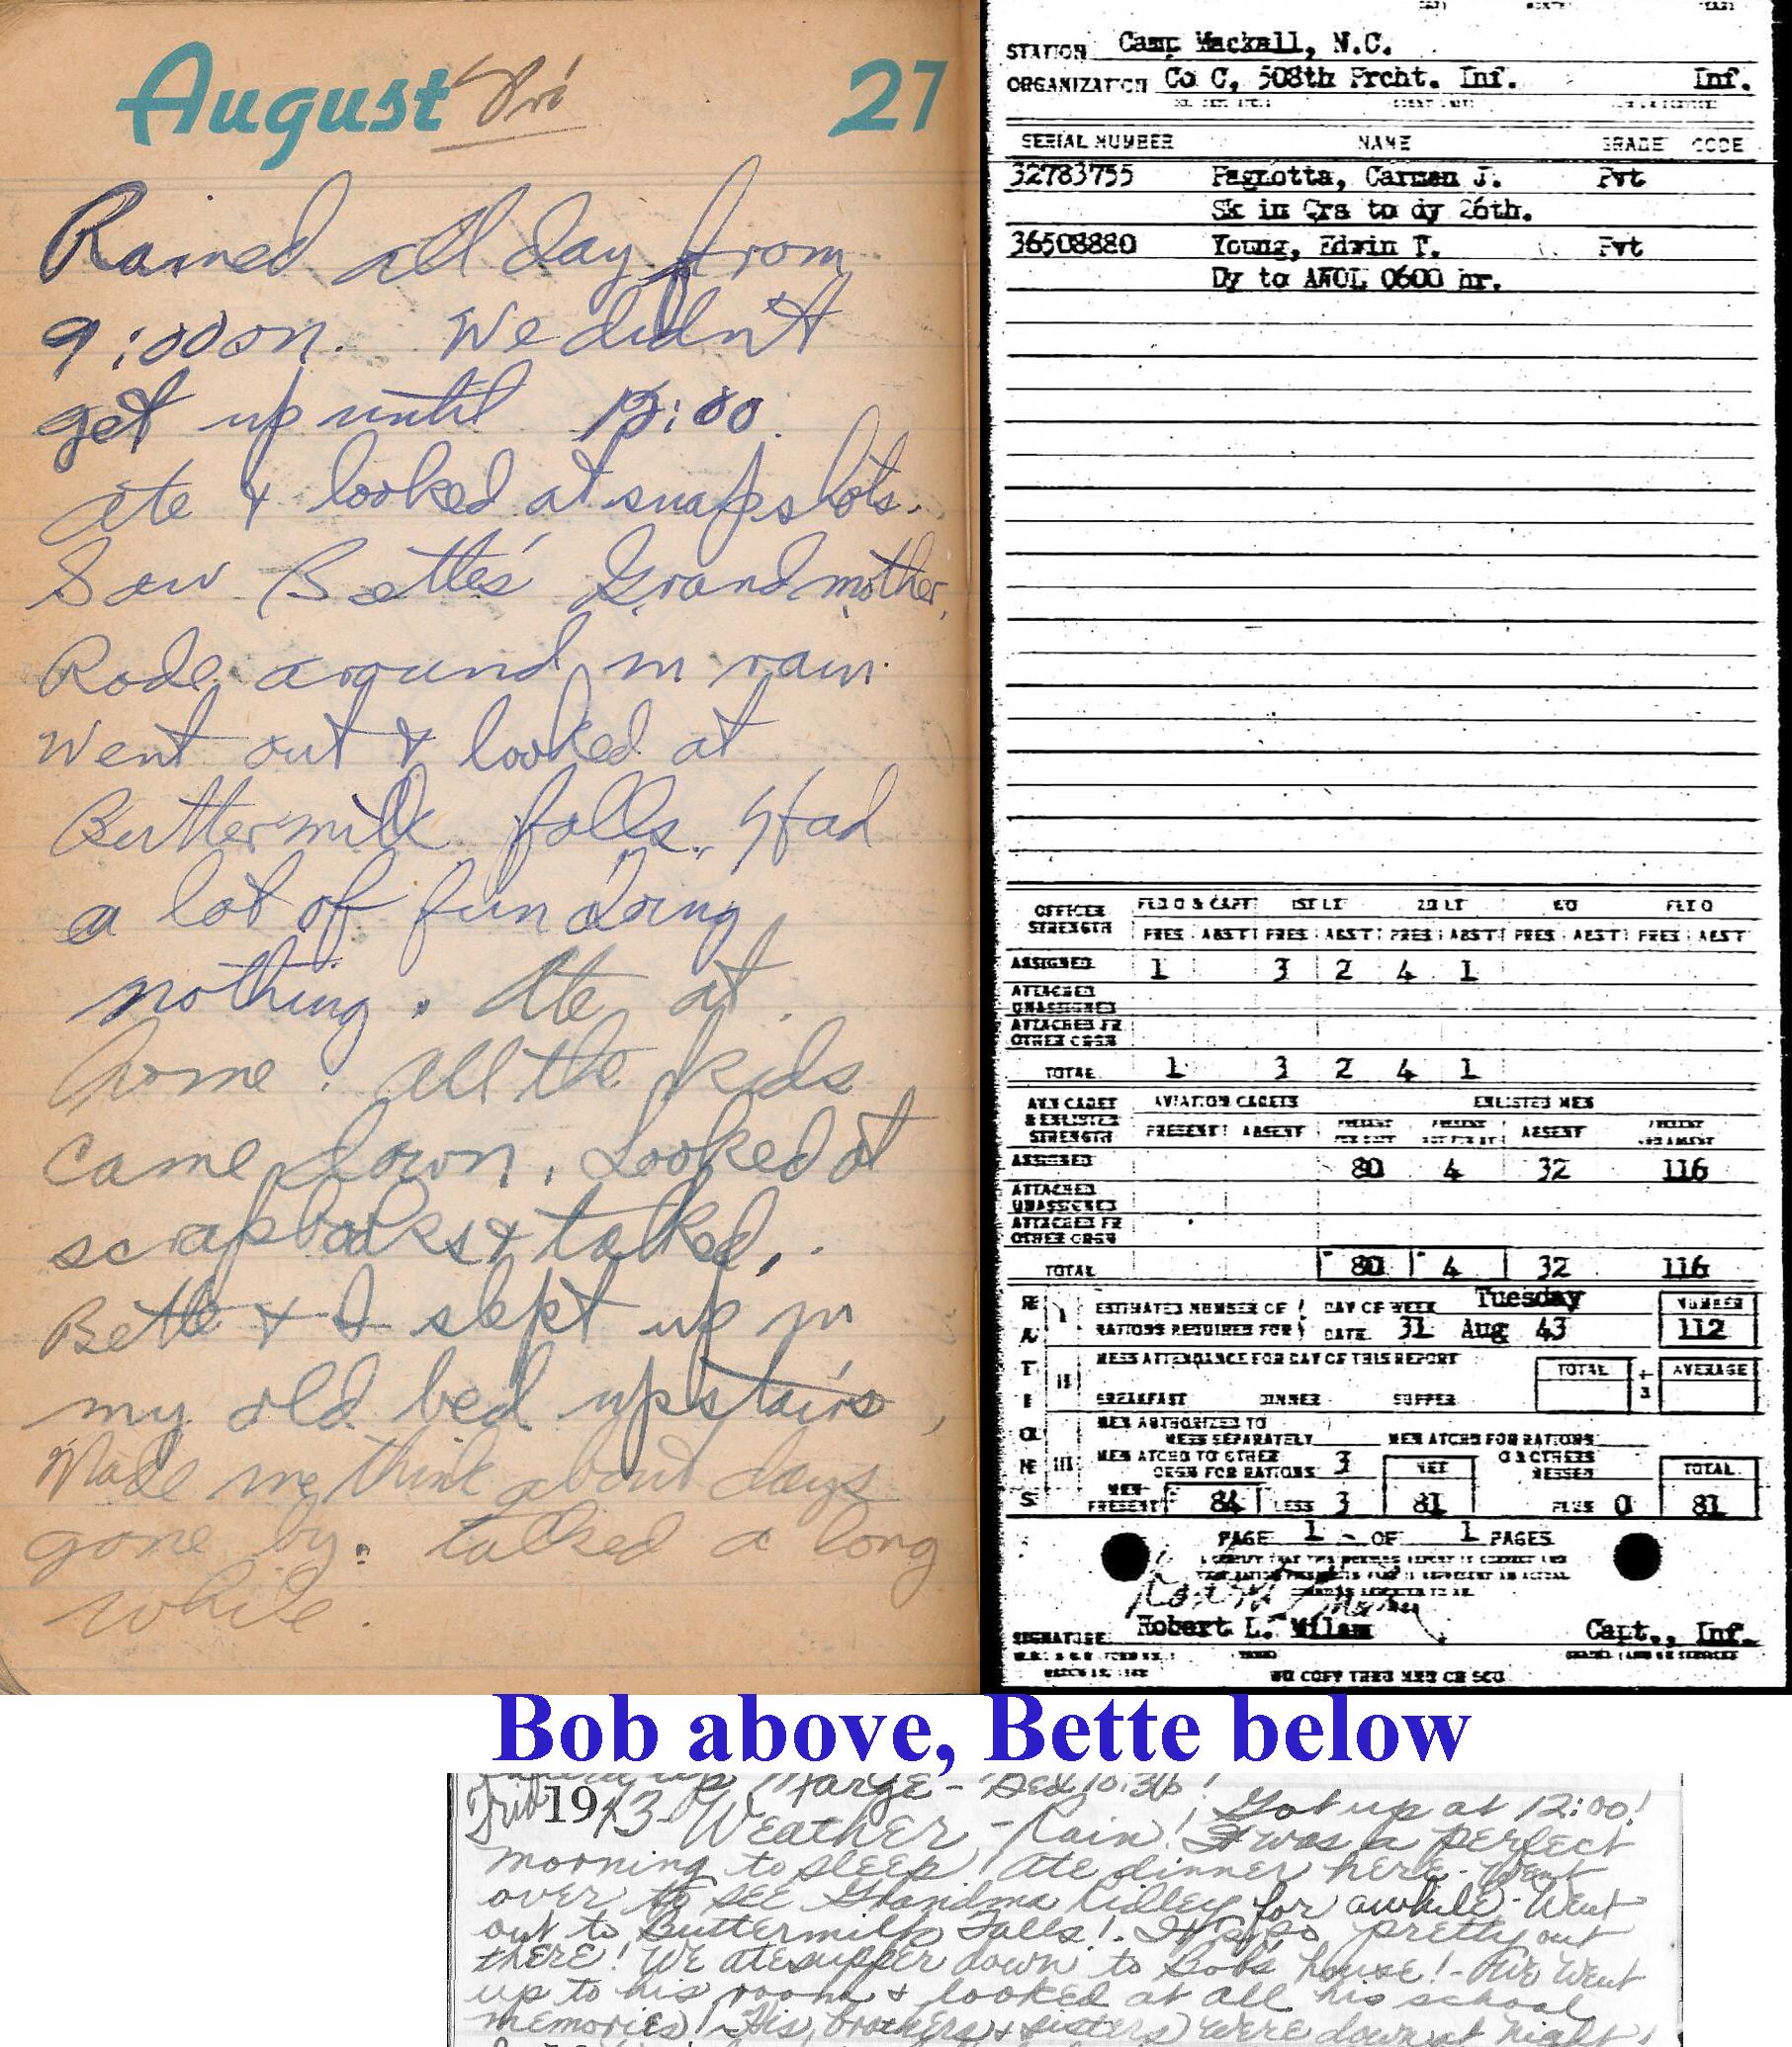 August Fri 27
Rained all day from
9:00 on. We didn't
get up until 12:00.
ate & looked at snapshots.
Saw Bette's Grandmother.
Rode around in rain.
Went out & looked at
Buttermilk falls. Had
a lot of fun doing
nothing. Ate at
home. All the kids
came down. Looked at
scrapbooks & talked.
Bette & I slept up in
my old bed upstairs,
Made me think about days
gone by. talked a long
while.
STATION Camp Mackall, N.C.
ORGANIZATION Co C, 508th Prcht. Inf. Inf.
SERIAL NUMBER NAME GRADE CODE
32783755 Pagnotta, Carmen J. Pvt
Sk in Qrs to dy 26th.
36508880 Young, Edwin T. Pvt
Dy to AWOL 0600 hr.
OFFICER STRENGTH FLD O & CAPT 1ST LT 2D LT WO FLT O
PRES ABST PRES ABST PRES ABST PRES ABST PRES ABST
ASSIGNED 1 3 2 4 1
ATTACHED UNASSIGNED
ATTACHED FR OTHER ORGN
TOTAL 1 3 2 4 1
AVN CADET & ENLISTED STRENGTH AVIATION CADETS ENLISTED MEN
PRESENT ABSENT PRESENT FOR DUTY PRESENT NOT FOR DY ABSENT PRESENT AND ABSENT
ASSIGNED 80 4 32 116
ATTACHED UNASSIGNED
ATTACHED FR OTHER ORGN
TOTAL 80 4 32 116
RATIONS
I ESTIMATED NUMBER OF RATIONS REQUIRED FOR DAY OF WEEK Tuesday NUMBER
DATE 31 Aug 43 112
II MESS ATTENDANCE FOR DAY OF THIS REPORT TOTAL ÷ 3 AVERAGE
BREAKFAST DINNER SUPPER
III MEN AUTHORIZED TO MESS SEPARATELY MEN ATCHD FOR RATIONS
MEN ATCHD TO OTHER ORGN FOR RATIONS 3 NET O & OTHERS MESSED TOTAL
MEN PRESENT 84 LESS 3 81 PLUS 0 81
PAGE 1 OF 1 PAGES
Robert L. Milam
SIGNATURE Capt., Inf.
NO COPY THRU MRU OR SCU
Bob above, Bette below
Marge - Bed 10:30!
Fri 1943 - Weather - Rain! Got up at 12:00!
It was a perfect
morning to sleep! Ate dinner here - Went
over to see Grandma Ridley for awhile - Went
out to Buttermilk Falls! It's so pretty out
there! We ate supper down to Bob's house! - We went
up to his room & looked at all his school
memories! - His brothers & sisters were down at night,